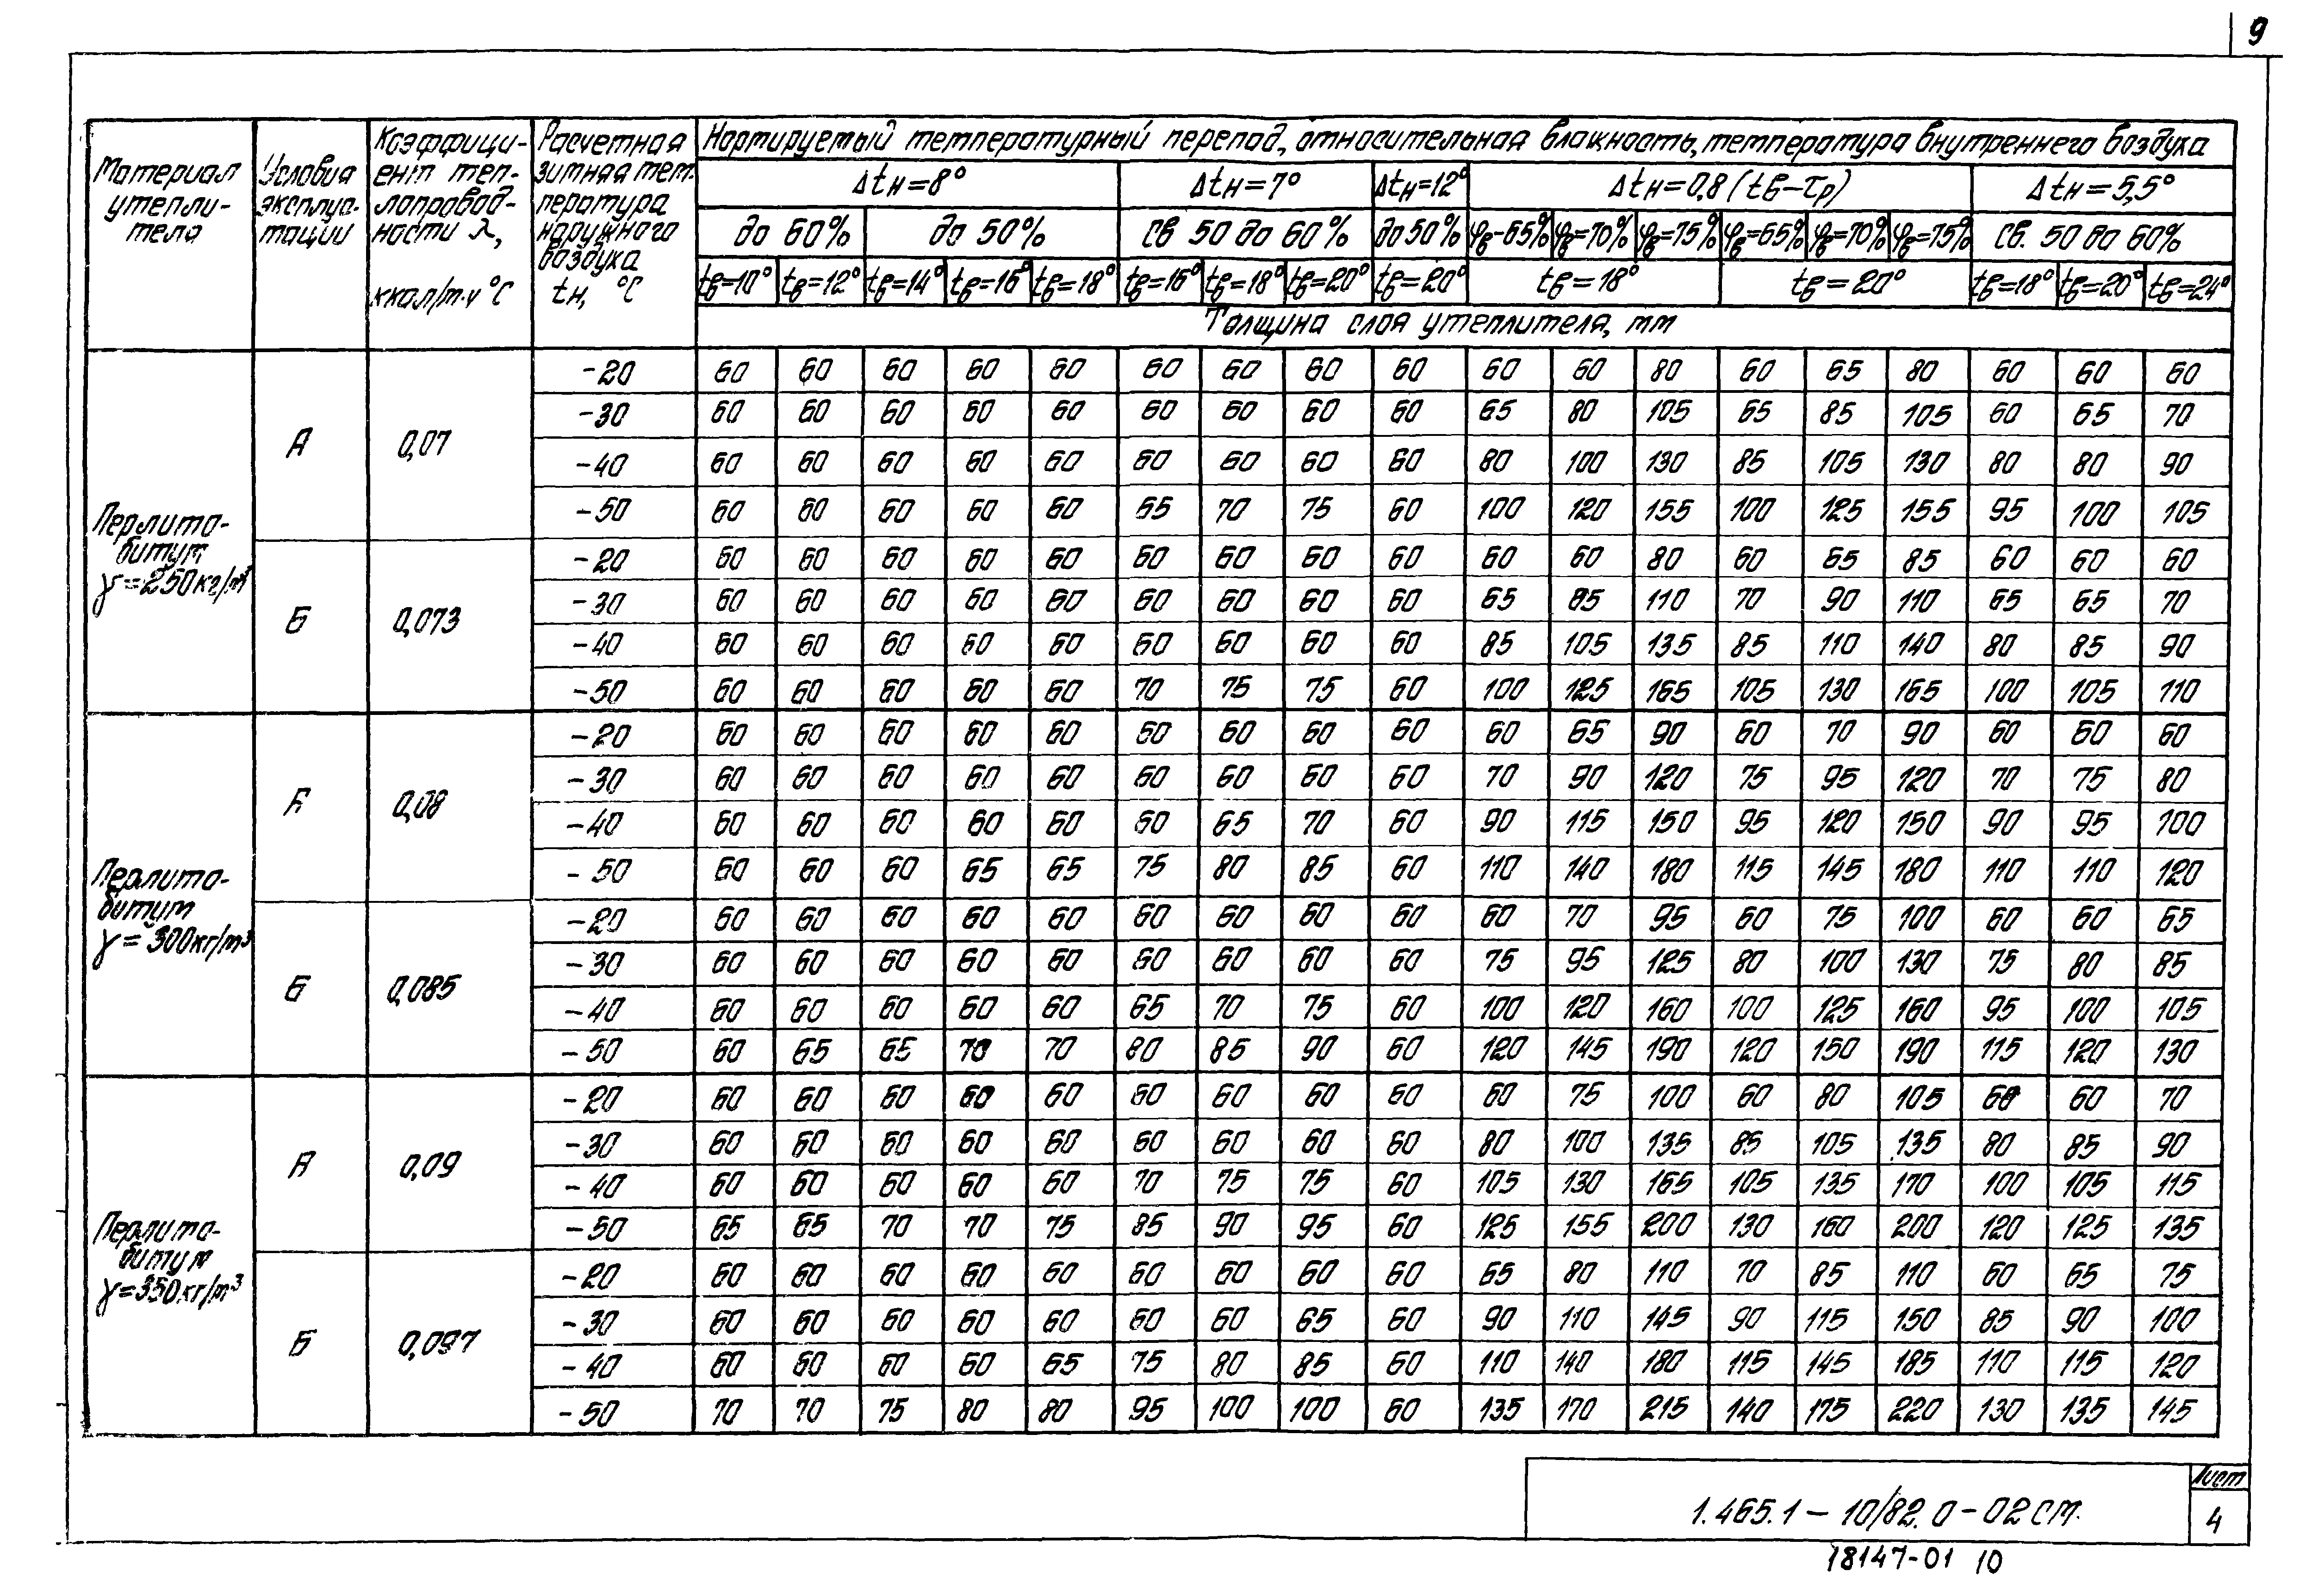 9
Материал утепли-теля | Условия эксплуа-тации | Коэффици-ент теп-лопровод-ности λ, ккал/м.ч °С | Расчетная зимняя тем-пература наружного воздуха tн, °С | Нормируемый температурный перепад, относительная влажность, температура внутреннего воздуха
Δtн=8° | Δtн=7° | Δtн=12° | Δtн=0,8(tв-τр) | Δtн=5,5°
до 60% | до 50% | св 50 до 60% | до 50% | φв-65% | φв=70% | φв=75% | φв=65% | φв=70% | φв=75% | св. 50 до 60%
tв=10° | tв=12° | tв=14° | tв=16° | tв=18° | tв=16° | tв=18° | tв=20° | tв=20° | tв=18° | tв=20° | tв=18° | tв=20° | tв=24°
Толщина слоя утеплителя, мм
Перлито-битум γ=250кг/м³
А | 0,07
-20 | 60 | 60 | 60 | 60 | 60 | 60 | 60 | 60 | 60 | 60 | 60 | 80 | 60 | 65 | 80 | 60 | 60 | 60
-30 | 60 | 60 | 60 | 60 | 60 | 60 | 60 | 60 | 60 | 65 | 80 | 105 | 65 | 85 | 105 | 60 | 65 | 70
-40 | 60 | 60 | 60 | 60 | 60 | 60 | 60 | 60 | 60 | 80 | 100 | 130 | 85 | 105 | 130 | 80 | 80 | 90
-50 | 60 | 60 | 60 | 60 | 60 | 65 | 70 | 75 | 60 | 100 | 120 | 155 | 100 | 125 | 155 | 95 | 100 | 105
Б | 0,073
-20 | 60 | 60 | 60 | 60 | 60 | 60 | 60 | 60 | 60 | 60 | 60 | 80 | 60 | 65 | 85 | 60 | 60 | 60
-30 | 60 | 60 | 60 | 60 | 60 | 60 | 60 | 60 | 60 | 65 | 85 | 110 | 70 | 90 | 110 | 65 | 65 | 70
-40 | 60 | 60 | 60 | 60 | 60 | 60 | 60 | 60 | 60 | 85 | 105 | 135 | 85 | 110 | 140 | 80 | 85 | 90
-50 | 60 | 60 | 60 | 60 | 60 | 70 | 75 | 75 | 60 | 100 | 125 | 165 | 105 | 130 | 165 | 100 | 105 | 110
Перлито-битум γ=300кг/м³
А | 0,08
-20 | 60 | 60 | 60 | 60 | 60 | 60 | 60 | 60 | 60 | 60 | 65 | 90 | 60 | 70 | 90 | 60 | 60 | 60
-30 | 60 | 60 | 60 | 60 | 60 | 60 | 60 | 60 | 60 | 70 | 90 | 120 | 75 | 95 | 120 | 70 | 75 | 80
-40 | 60 | 60 | 60 | 60 | 60 | 60 | 65 | 70 | 60 | 90 | 115 | 150 | 95 | 120 | 150 | 90 | 95 | 100
-50 | 60 | 60 | 60 | 65 | 65 | 75 | 80 | 85 | 60 | 110 | 140 | 180 | 115 | 145 | 180 | 110 | 110 | 120
Б | 0,085
-20 | 60 | 60 | 60 | 60 | 60 | 60 | 60 | 60 | 60 | 60 | 70 | 95 | 60 | 75 | 100 | 60 | 60 | 65
-30 | 60 | 60 | 60 | 60 | 60 | 60 | 60 | 60 | 60 | 75 | 95 | 125 | 80 | 100 | 130 | 75 | 80 | 85
-40 | 60 | 60 | 60 | 60 | 60 | 65 | 70 | 75 | 60 | 100 | 120 | 160 | 100 | 125 | 160 | 95 | 100 | 105
-50 | 60 | 65 | 65 | 70 | 70 | 80 | 85 | 90 | 60 | 120 | 145 | 190 | 120 | 150 | 190 | 115 | 120 | 130
Перлито-битум γ=350кг/м³
А | 0,09
-20 | 60 | 60 | 60 | 60 | 60 | 60 | 60 | 60 | 60 | 60 | 75 | 100 | 60 | 80 | 105 | 60 | 60 | 70
-30 | 60 | 60 | 60 | 60 | 60 | 60 | 60 | 60 | 60 | 80 | 100 | 135 | 85 | 105 | 135 | 80 | 85 | 90
-40 | 60 | 60 | 60 | 60 | 60 | 70 | 75 | 75 | 60 | 105 | 130 | 165 | 105 | 135 | 170 | 100 | 105 | 115
-50 | 65 | 65 | 70 | 70 | 75 | 85 | 90 | 95 | 60 | 125 | 155 | 200 | 130 | 160 | 200 | 120 | 125 | 135
Б | 0,097
-20 | 60 | 60 | 60 | 60 | 60 | 60 | 60 | 60 | 60 | 65 | 80 | 110 | 70 | 85 | 110 | 60 | 65 | 75
-30 | 60 | 60 | 60 | 60 | 60 | 60 | 60 | 65 | 60 | 90 | 110 | 145 | 90 | 115 | 150 | 85 | 90 | 100
-40 | 60 | 60 | 60 | 60 | 65 | 75 | 80 | 85 | 60 | 110 | 140 | 180 | 115 | 145 | 185 | 110 | 115 | 120
-50 | 70 | 70 | 75 | 80 | 80 | 95 | 100 | 100 | 60 | 135 | 170 | 215 | 140 | 175 | 220 | 130 | 135 | 145
1.465.1-10/82.0-02СМ.
Лист
4
18147-01 10